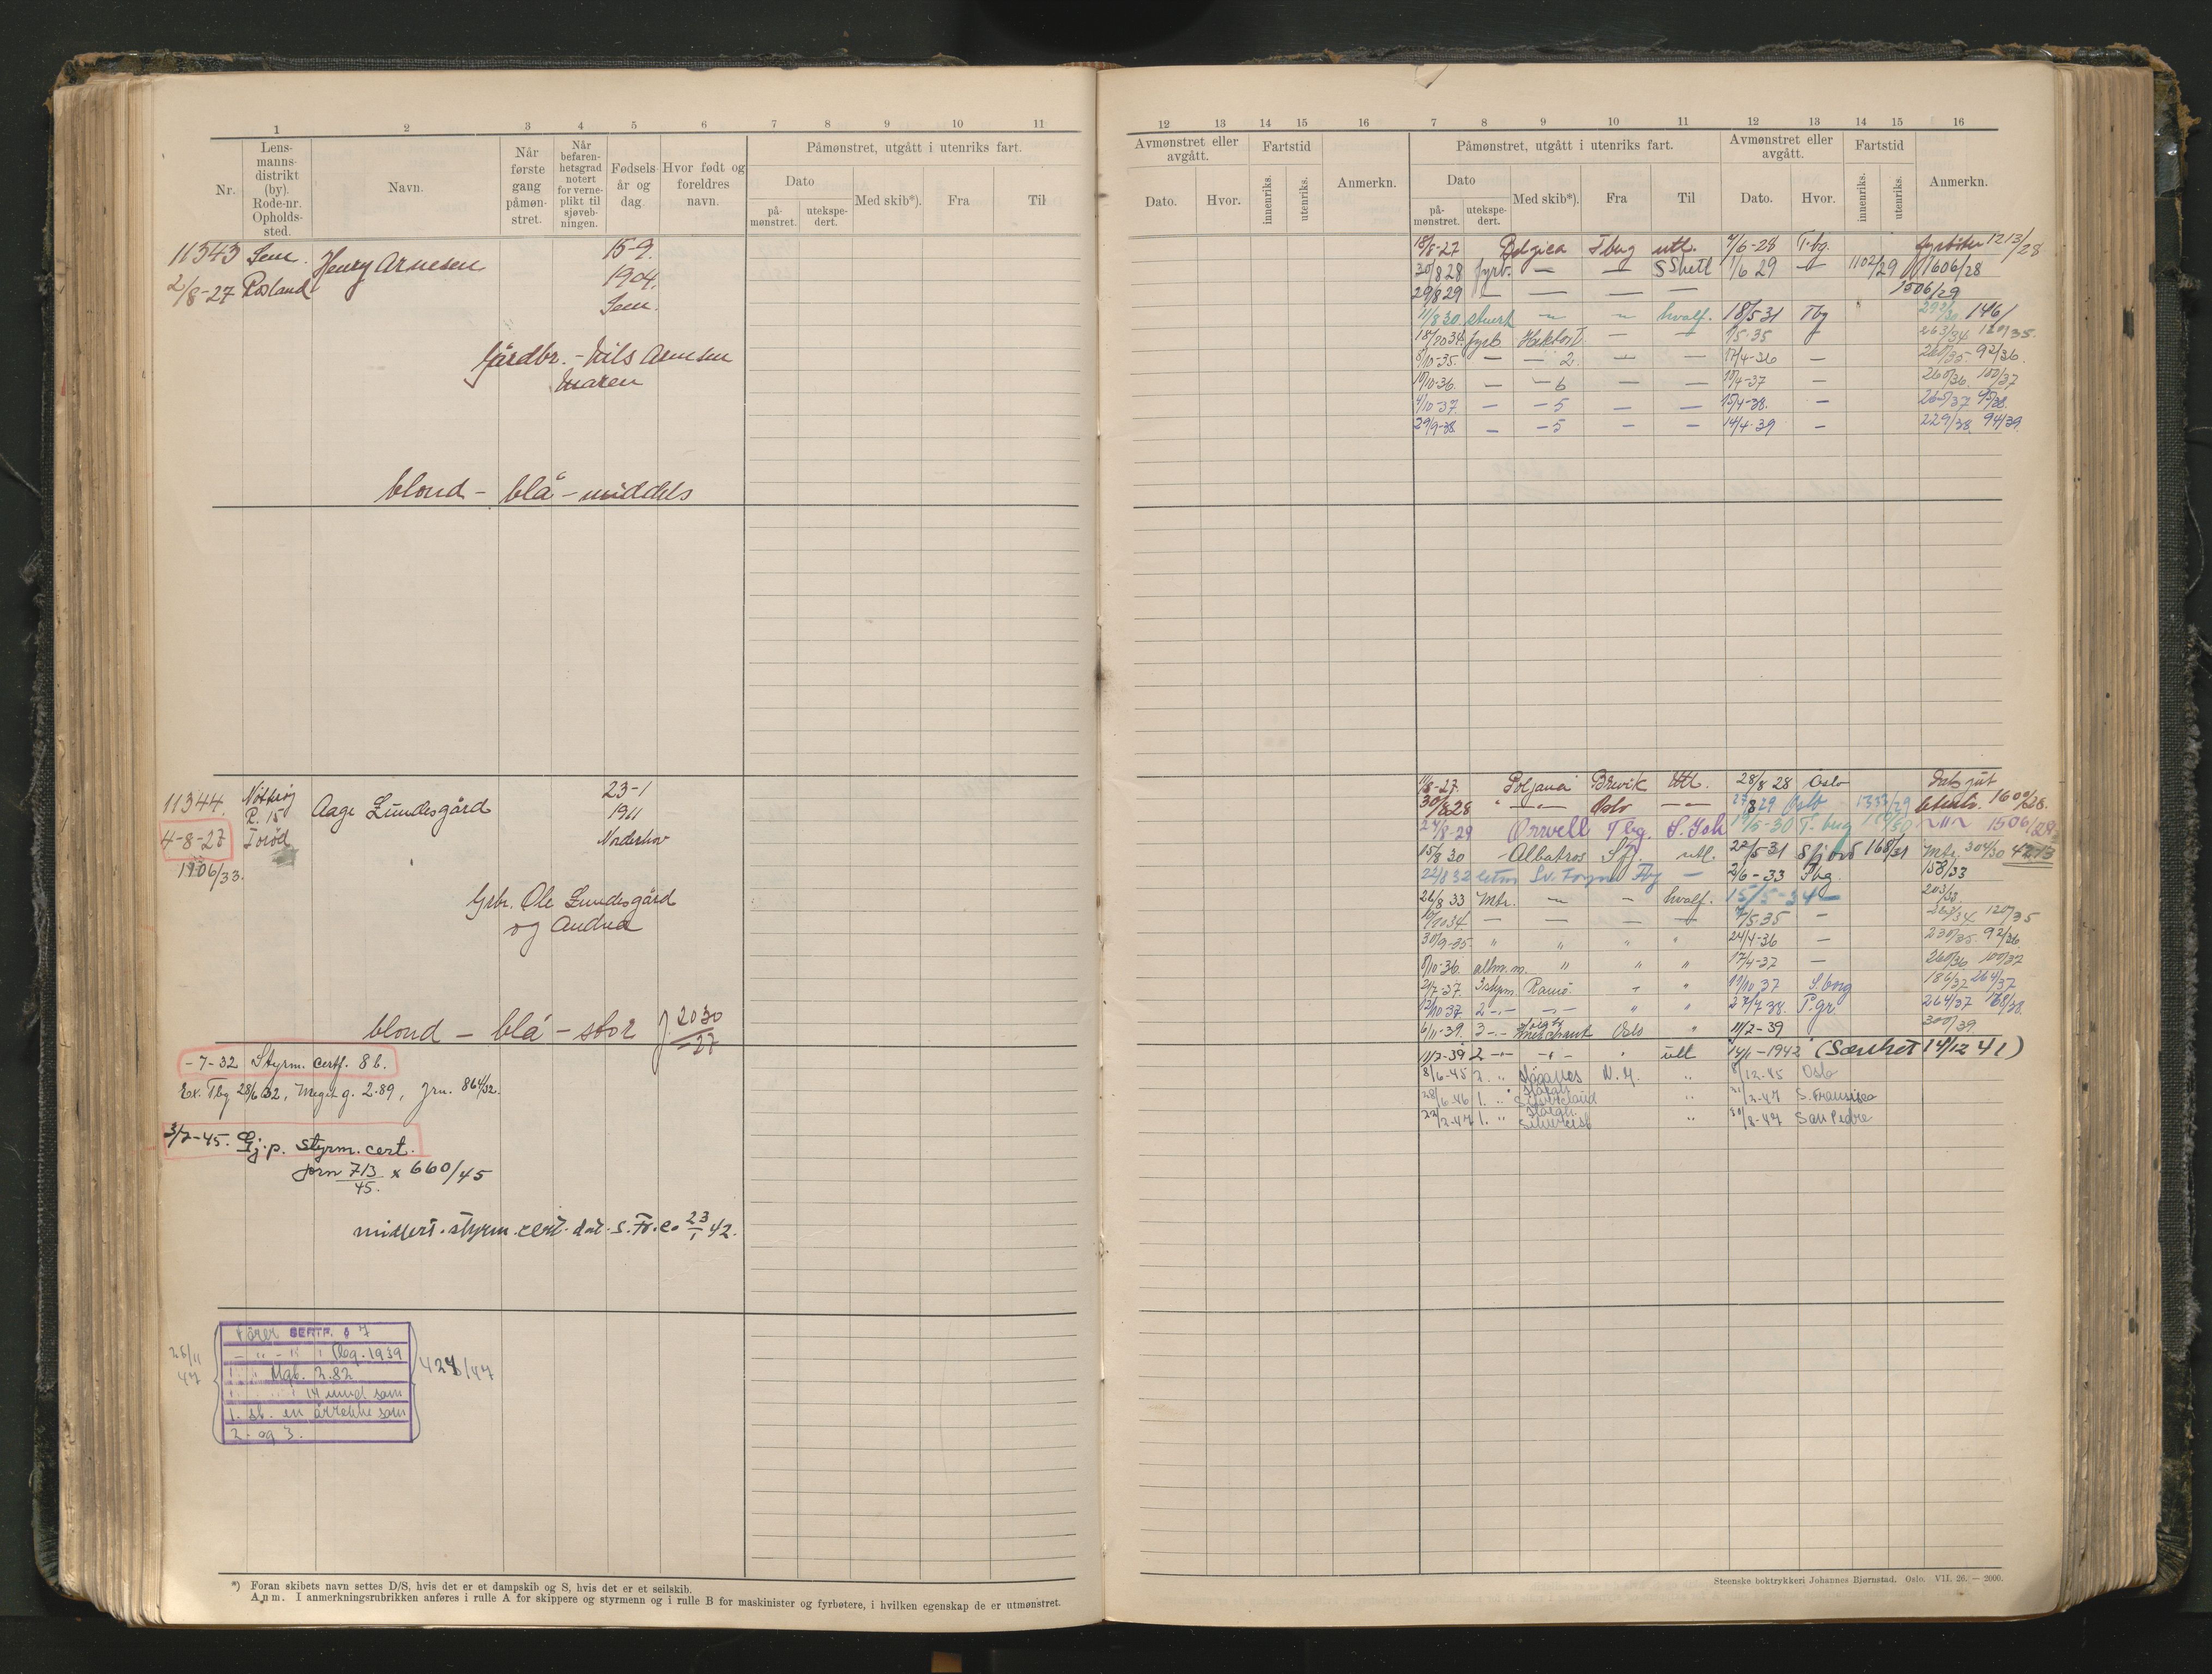 1 2 3 4 5 6 7 8 9 10 11
Nr.
Lens-
manns-
distrikt
(by).
Rode-nr.
Opholds-
sted.
Navn.
Når
første
gang
påmøn-
stret.
Når
befaren-
hetsgrad
notert
for verne-
plikt til
sjøveb-
ningen.
Fødsels
år og
dag.
Hvor født og
foreldres
navn.
Påmønstret, utgått i utenriks fart.
Dato
på-
mønstret.
utekspe-
dert.
Med skib*).
Fra
Til
11343 Sem Henry Arnesen 15-9.
2/8-27 Rosland 1904.
Sem.
Gårdbr. - Nils Arnesen
Maren
blond - blå - middels
11344. Nøtterøy Aage Lundesgård 23-1
R. 15 1911
4-8-27 Torød Norderhov
1906/33.
Grbr. Ole Lundesgård
og Andrea
blond - blå - stor J. 2030/27
-7-32 Styrm. certf. 8 b.
Ex. Tbg 28/6 32, Meget g. 2.89, Jrn. 864/32.
3/7-45. Gj.p. styrm. cert.
Jorn 713/45. x 660/45
midlert. styrm. cert. dat. S. Fr. co 23/1 42.
Fører SERTF. § 7
- " - " Tbg. 1939
" " Mgt. 2.82
" " 14 mnd som
1. st. en årrekke som
2. og 3.
25/11 47
428/47
*) Foran skibets navn settes D/S, hvis det er et dampskib og S, hvis det er et seilskib.
Anm. I anmerkningsrubrikken anføres i rulle A for skippere og styrmenn og i rulle B for maskinister og fyrbøtere, i hvilken egenskap de er utmønstret.
12 13 14 15 16 7 8 9 10 11 12 13 14 15 16
Avmønstret eller
avgått.
Dato.
Hvor.
Fartstid
innenriks.
utenriks.
Anmerkn.
Påmønstret, utgått i utenriks fart.
Dato
på-
mønstret.
utekspe-
dert.
Med skib*).
Fra
Til
Avmønstret eller
avgått.
Dato.
Hvor.
Fartstid
innenriks.
utenriks.
Anmerkn.
18/8-27 Belgica Tbug utl. 4/6-28 T.bg. fyrbøter 1213/28
30/8 28 fyrb. — — S Shetl 1/6 29 — 1102/29 1606/28
29/8 29 — — — — 1506/29
11/8 30. stuert — — hvalf. 18/5 31 Tbg 292/30 146/
18/10 34. fyrb Hektort — — /5-35 — 263/34 120/35.
8/10-35. — — 2. — — 17/4-36 — 260/35. 92/36.
10/10-36. — — 6 — — 19/4-37 — 260/36. 100/37
4/10-37. — — 5 — — 15/4-38. — 265/37 95/38.
29/9-38. — — 5 — — 14/4-39 — 229/38. 94/39.
11/8-27. Poljana Brevik Utl. 28/8 28 Oslo Dæksgut
30/8 28 " — " — Oslo — " — 27/8 29 Oslo 1333/29 1600/28.
27/8-29 Orwell Tbg. S. Ish 19/5-30 T.bug 1506/29
15/8 30 Albatros Sfj. utl. 22/5-31 Sfjord 168/31 Mtr. 304/30 4213
22/8 32 Sv. Foyn Tbg — 2/6-33 Tbg. 158/33
26/8 33 Mtr. — — hvalf. 15/5-34 — 203/33.
10/10 34. — — — — 7/5-35 — 262/34 120/35
30/9-35. " " " " 24/4-36 — 230/35. 92/36.
8/10-36. altm. m. " " " 17/4-37 — 260/36 100/37
2/7-37. 3 styrm. Ramø. " " 11/10 37 S.borg 186/37 264/37
12/10 37. 2 -"- -"- " " 27/7 38. P.gr 264/37 168/38.
6/11-39. 3 -"- Merchant Oslo " 11/7-39 300/39
11/7-39 2 -"- -"- " utl 14/1-1942 (Sænket 14/12 41)
8/6-45 2. " Høegh N.Y. " 8/12-45 Oslo
28/6-46 1. " Høegh Silvercloud " 21/2-47 S. Fransisco
22/2-47 1. " Høegh " 30/8-47 San Pedro
Steenske boktrykkeri Johannes Bjørnstad. Oslo. VII. 26. — 2000.